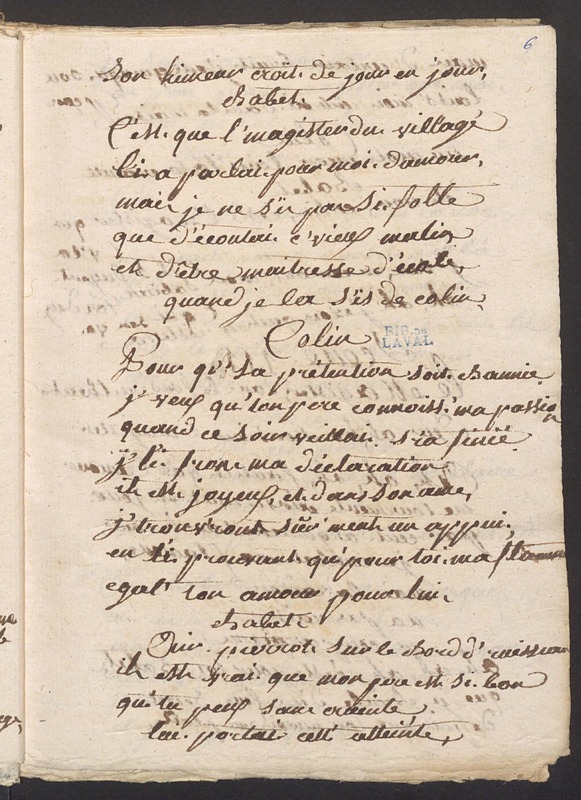 6
Son humeur croit de jour en jour,
babet,
C'est que l'magister du village
li a parlai pour moi d'amour,
mais je ne s'is pas si folle
que d'écoutai c'vieux malin
et d'être maitresse d'école,
quand je la s'is de colin.
Colin
BIB. DE
LAVAL
Pour qu'sa prétention soit bannie
j'veux qu'ton pere connoiss'ma passion
quand ce soir veillai s'ra finie
j'li frons ma déclaration
il est joyeux, et dans son ame,
j'trouv'rons sûr'ment un appui,
en li prouvant qu'pour toi ma flamme
egal' ton amour pour lui.
babet.
Oui. pierrot sur le bord d'
il est vrai que mon pere est si bon
qu'tu peux sans crainte
lui portai cett' atteinte,